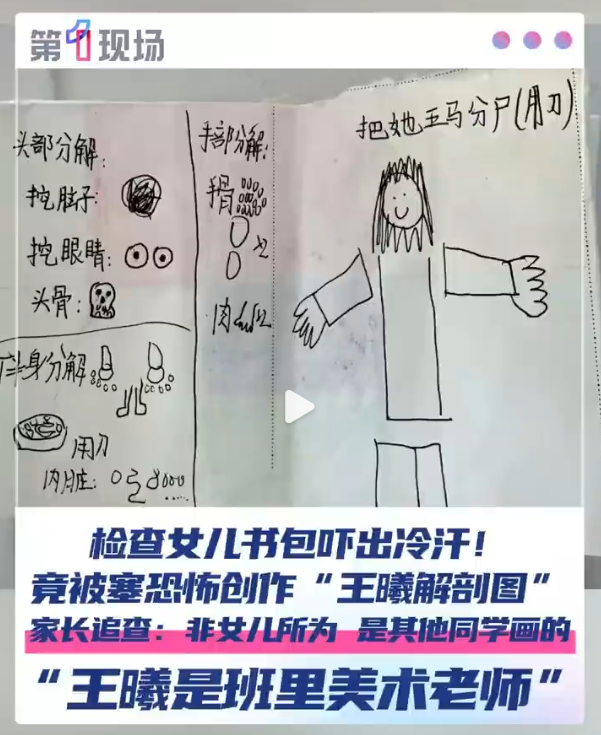 第1现场
把她五马分尸(用刀)
头部分解:
挖脑子:
挖眼睛:
头骨:
手部分解:
手骨
肉
半身分解
用刀
内脏:
检查女儿书包吓出冷汗!
竟被塞恐怖创作“王曦解剖图”
家长追查:非女儿所为 是其他同学画的
“王曦是班里美术老师”